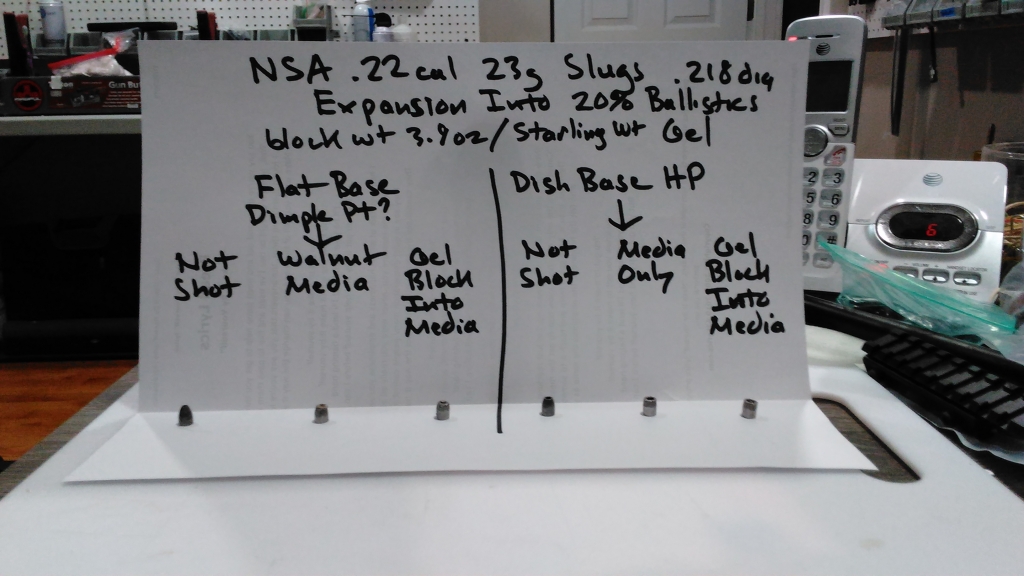 NSA .22cal 23g Slugs .218dia
Expansion Into 20% Ballistics
block wt 3.9oz/Starling wt Gel
Flat Base
Dimple Pt?
Not
Shot
Walnut
Media
Gel
Block
Into
Media
Dish Base HP
Not
Shot
Media
Only
Gel
Block
Into
Media
AT&T
AT&T
6
2 3
5 6
8 9
0 #